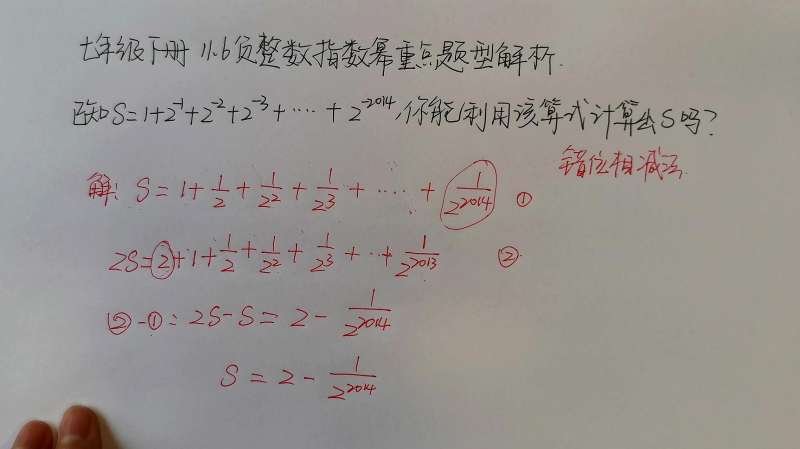 七年级下册 11.6负整数指数幂重点题型解析.
已知S=1+2⁻¹+2⁻²+2⁻³+……+2⁻²⁰¹⁴,你能利用该算式计算出S吗?
错位相减法.
解: S=1+1/2+1/2²+1/2³+……+1/2²⁰¹⁴ ①
2S=2+1+1/2+1/2²+1/2³+…+1/2²⁰¹³ ②.
②-①: 2S-S=2-1/2²⁰¹⁴
S=2-1/2²⁰¹⁴